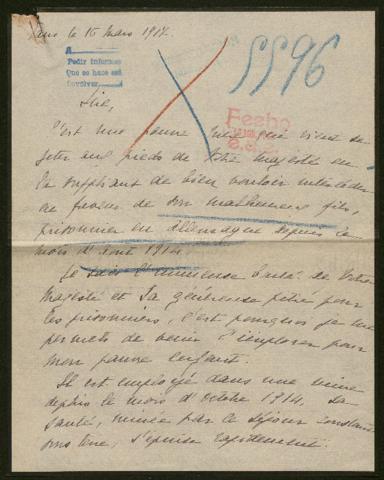 le 16 Mars 1917.
A
Pedir informes
Que se hace está
devolver
5596
Fecho
Sire,
C'est une pauvre mère qui vient se
jeter aux pieds de Votre Majesté en
la suppliant de bien vouloir intercéder
en faveur de son malheureux fils,
prisonnier en Allemagne depuis le
mois d'Août 1914.
Je sais l'immense bonté de Votre
Majesté et sa généreuse pitié pour
les prisonniers, c'est pourquoi je me
permets de venir l'implorer pour
mon pauvre enfant.
Il est employé dans une mine
depuis le mois d'Octobre 1914. Sa
santé, minée par le séjour constant
sous terre, s'épuise rapidement.